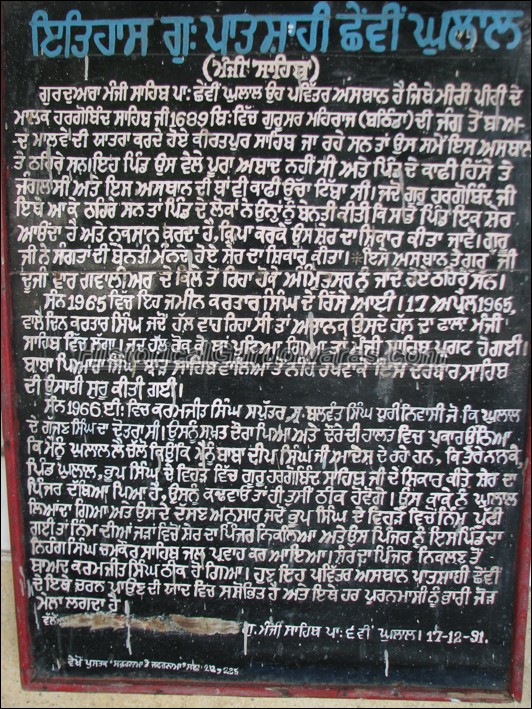 ਇਤਿਹਾਸ ਗੁ: ਪਾਤਸ਼ਾਹੀ ਛੇਂਵੀਂ ਘੁਲਾਲ
(ਮੰਜੀ ਸਾਹਿਬ)
ਗੁਰਦੁਆਰਾ ਮੰਜੀ ਸਾਹਿਬ ਪਾ: ਛੇਵੀਂ ਘੁਲਾਲ ਉਹ ਪਵਿੱਤਰ ਅਸਥਾਨ ਹੈ ਜਿਥੇ ਮੀਰੀ ਪੀਰੀ ਦੇ
ਮਾਲਕ ਹਰਗੋਬਿੰਦ ਸਾਹਿਬ ਜੀ 1689 ਬਿ: ਵਿੱਚ ਗੁਰੂਸਰ ਮਹਿਰਾਜ (ਬਠਿੰਡਾ) ਦੀ ਜੰਗ ਤੋਂ ਬਾਅ-
ਦ ਮਾਲਵੇ ਦੀ ਯਾਤਰਾ ਕਰਦੇ ਹੋਏ ਕੀਰਤਪੁਰ ਸਾਹਿਬ ਜਾ ਰਹੇ ਸਨ ਤਾਂ ਉਸ ਸਮੇਂ ਇਸ ਅਸਥਾਨ
ਤੇ ਠਹਿਰੇ ਸਨ।ਇਹ ਪਿੰਡ ਉਸ ਵੇਲੇ ਪੂਰਾ ਅਬਾਦ ਨਹੀਂ ਸੀ ਅਤੇ ਪਿੰਡ ਦੇ ਕਾਫੀ ਹਿੱਸੇ ਤੇ
ਜੰਗਲ ਸੀ ਅਤੇ ਇਸ ਅਸਥਾਨ ਦੀ ਥਾਂ ਵੀ ਕਾਫੀ ਉੱਚਾ ਟਿੱਬਾ ਸੀ। ਜਦੋਂ ਗੁਰੂ ਹਰਗੋਬਿੰਦ ਜੀ
ਇਥੇ ਆ ਕੇ ਠਹਿਰੇ ਸਨ ਤਾਂ ਪਿੰਡ ਦੇ ਲੋਕਾਂ ਨੇ ਉਨ੍ਹਾਂ ਨੂੰ ਬੇਨਤੀ ਕੀਤੀ ਕਿ ਸਾਡੇ ਪਿੰਡ ਇਕ ਸ਼ੇਰ
ਆਉਂਦਾ ਹੈ ਅਤੇ ਨੁਕਸਾਨ ਕਰਦਾ ਹੈ, ਕ੍ਰਿਪਾ ਕਰਕੇ ਉਸ ਸ਼ੇਰ ਦਾ ਸ਼ਿਕਾਰ ਕੀਤਾ ਜਾਵੇ। ਗੁਰੂ
ਜੀ ਨੇ ਸੰਗਤਾਂ ਦੀ ਬੇਨਤੀ ਮੰਨਦੇ ਹੋਏ ਸ਼ੇਰ ਦਾ ਸ਼ਿਕਾਰ ਕੀਤਾ।* ਇਸ ਅਸਥਾਨ ਤੇ ਗੁਰੂ ਜੀ
ਦੂਜੀ ਵਾਰ ਗਵਾਲੀਅਰ ਦੇ ਕਿਲੇ ਤੋਂ ਰਿਹਾ ਹੋਕੇ ਅੰਮ੍ਰਿਤਸਰ ਨੂੰ ਜਾਂਦੇ ਹੋਏ ਠਹਿਰੇ ਸਨ।
ਸੰਨ 1965 ਵਿੱਚ ਇਹ ਜਮੀਨ ਕਰਤਾਰ ਸਿੰਘ ਦੇ ਹਿੱਸੇ ਆਈ। 17 ਅਪ੍ਰੈਲ 1965,
ਵਾਲੇ ਦਿਨ ਕਰਤਾਰ ਸਿੰਘ ਜਦੋਂ ਹੱਲ ਵਾਹ ਰਿਹਾ ਸੀ ਤਾਂ ਅਚਾਨਕ ਉਸਦੇ ਹੱਲ ਦਾ ਫਾਲਾ ਮੰਜੀ
ਸਾਹਿਬ ਵਿੱਚ ਲੱਗਾ। ਜਦ ਹੱਲ ਰੋਕ ਕੇ ਥਾਂ ਪੁਟਿਆ ਗਿਆ ਤਾਂ ਮੰਜੀ ਸਾਹਿਬ ਪ੍ਰਗਟ ਹੋ ਗਈ।
ਬਾਬਾ ਪਿਆਰਾ ਸਿੰਘ ਝਾੜ ਸਾਹਿਬ ਵਾਲਿਆਂ ਤੋਂ ਨੀਂਹ ਰਖਵਾਕੇ ਇਸ ਦਰਬਾਰ ਸਾਹਿਬ
ਦੀ ਉਸਾਰੀ ਸ਼ੁਰੂ ਕੀਤੀ ਗਈ।
HistoricalGurudwaras.com
ਸੰਨ 1966 ਈ: ਵਿਚ ਕਰਮਜੀਤ ਸਿੰਘ ਸਪੁੱਤਰ ਸ੍ਰ: ਬਲਵੰਤ ਸਿੰਘ ਧੂਰੀ ਨਿਵਾਸੀ ਜੋ ਕਿ ਘੁਲਾਲ
ਦੇ ਗੁੱਜਣ ਸਿੰਘ ਦਾ ਦੋਹਤਰਾ ਸੀ। ਉਸਨੂੰ ਸਖ਼ਤ ਦੌਰਾ ਪਿਆ ਅਤੇ ਦੌਰੇ ਦੀ ਹਾਲਤ ਵਿਚ ਪੁਕਾਰ ਉੱਠਿਆ
ਕਿ ਮੈਨੂੰ ਘੁਲਾਲ ਲੈ ਚੱਲੋ ਕਿਉਂਕਿ ਮੈਨੂੰ ਬਾਬਾ ਦੀਪ ਸਿੰਘ ਜੀ ਆਦੇਸ਼ ਦੇ ਰਹੇ ਹਨ, ਕਿ ਤੇਰੇ ਨਾਨਕੇ,
ਪਿੰਡ ਘੁਲਾਲ, ਭੂਪ ਸਿੰਘ ਦੇ ਵਿਹੜੇ ਵਿੱਚ ਗੁਰੂ ਹਰਗੋਬਿੰਦ ਸਾਹਿਬ ਜੀ ਦੇ ਸ਼ਿਕਾਰ ਕੀਤੇ ਸ਼ੇਰ ਦਾ
ਪਿੰਜਰ ਦੱਬਿਆ ਪਿਆ ਹੈ, ਉਸਨੂੰ ਕਢਵਾਓ ਤਾਂ ਹੀ ਤੁਸੀਂ ਠੀਕ ਹੋਵੋਗੇ। ਉਸ ਕਾਕੇ ਨੂੰ ਘੁਲਾਲ
ਲਿਆਂਦਾ ਗਿਆ ਅਤੇ ਉਸ ਦੇ ਦੱਸਣ ਅਨੁਸਾਰ ਜਦੋਂ ਭੂਪ ਸਿੰਘ ਦੇ ਵਿਹੜੇ ਵਿਚੋਂ ਨਿੰਮ ਪੁੱਟੀ
ਗਈ ਤਾਂ ਨਿੰਮ ਦੀਆਂ ਜੜਾਂ ਵਿਚੋਂ ਸ਼ੇਰ ਦਾ ਪਿੰਜਰ ਨਿਕਲਿਆ ਅਤੇ ਉਸ ਪਿੰਜਰ ਨੂੰ ਇਸ ਪਿੰਡ ਦਾ
ਨਿਹੰਗ ਸਿੰਘ ਚਮਕੌਰ ਸਾਹਿਬ ਜਲ ਪ੍ਰਵਾਹ ਕਰ ਆਇਆ। ਸ਼ੇਰ ਦਾ ਪਿੰਜਰ ਨਿਕਲਣ ਤੋਂ
ਬਾਅਦ ਕਰਮਜੀਤ ਸਿੰਘ ਠੀਕ ਹੋ ਗਿਆ। ਹੁਣ ਇਹ ਪਵਿੱਤਰ ਅਸਥਾਨ ਪਾਤਸ਼ਾਹੀ ਛੇਂਵੀਂ
ਦੇ ਇਥੇ ਚਰਨ ਪਾਉਣ ਦੀ ਯਾਦ ਵਿਚ ਸਸ਼ੋਭਿਤ ਹੈ ਅਤੇ ਇਥੇ ਹਰ ਪੂਰਨਮਾਸ਼ੀ ਨੂੰ ਭਾਰੀ ਜੋੜ
ਮੇਲਾ ਲਗਦਾ ਹੈ।
ਵੱਲੋਂ
ਗੁ. ਮੰਜੀ ਸਾਹਿਬ ਪਾ: ੬ਵੀਂ ਘੁਲਾਲ। 17-12-91.
ਵੇਖੋ ਪੁਸਤਕ